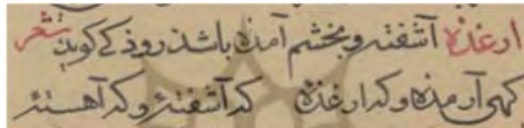 ارغذه آشفته و بخشم آمذه باشذ روذکی کوید شعر
کهی آرمذه و که ارغذه که آشفته و که آهسته